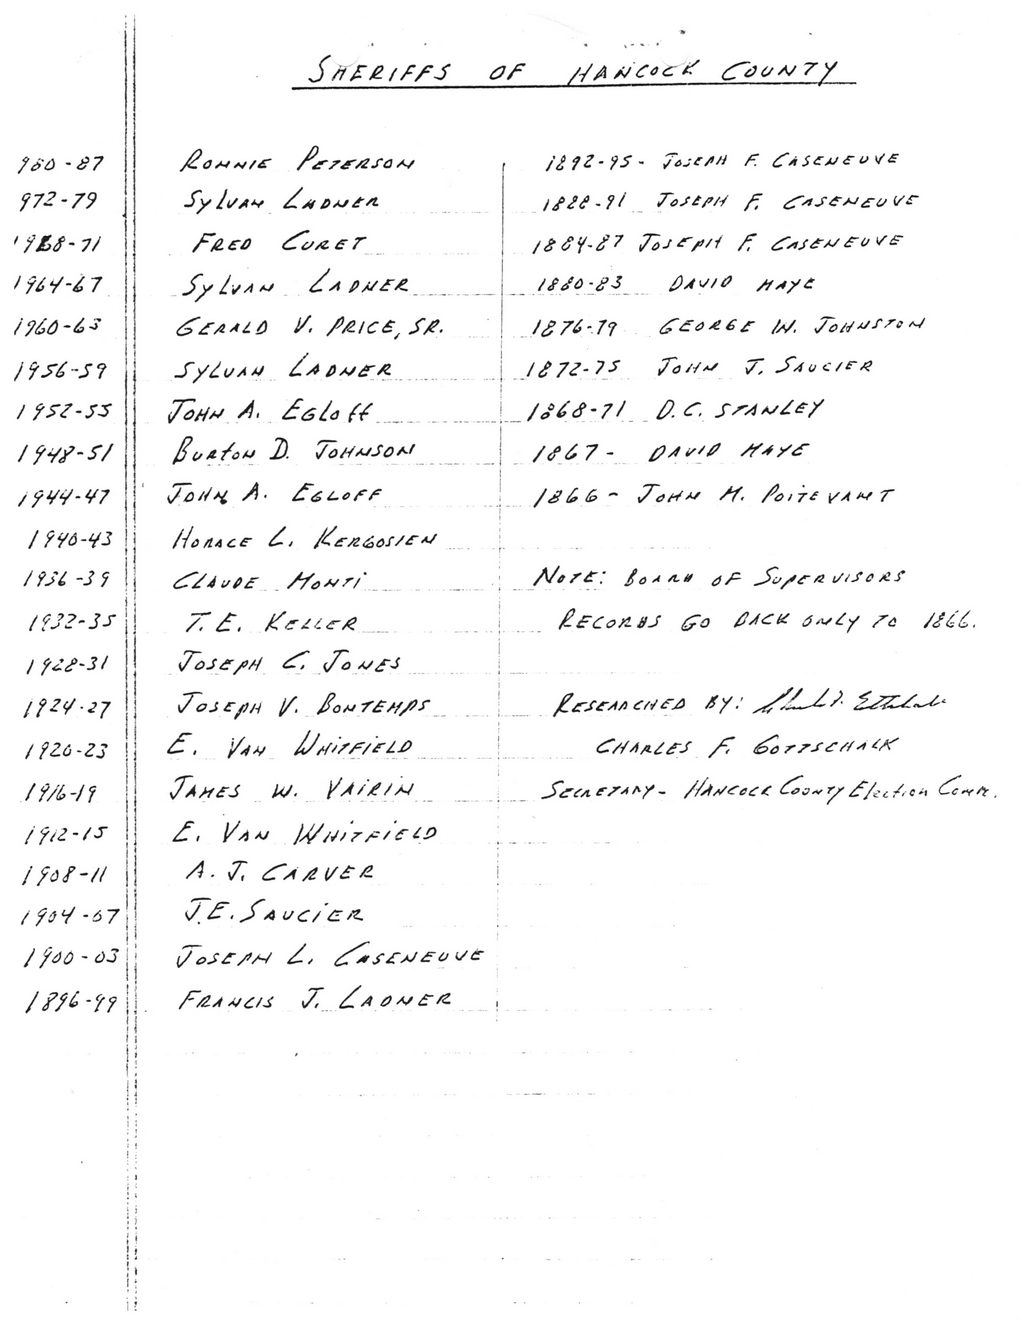 SHERIFFS OF HANCOCK COUNTY
980-87 RONNIE PETERSON
972-79 SYLVAN LADNER
1968-71 FRED CURET
1964-67 SYLVAN LADNER
1960-63 GERALD V. PRICE, SR.
1956-59 SYLVAN LADNER
1952-55 JOHN A. EGLOFF
1948-51 BURTON D. JOHNSON
1944-47 JOHN A. EGLOFF
1940-43 HORACE L. KERGOSIEN
1936-39 CLAUDE MONTI
1932-35 T. E. KELLER
1928-31 JOSEPH C. JONES
1924-27 JOSEPH V. BONTEMPS
1920-23 E. VAN WHITFIELD
1916-19 JAMES W. VAIRIN
1912-15 E. VAN WHITFIELD
1908-11 A. J. CARVER
1904-07 J.E. SAUCIER
1900-03 JOSEPH L. CASENEUVE
1896-99 FRANCIS J. LADNER
1892-95- JOSEPH F. CASENEUVE
1888-91 JOSEPH F. CASENEUVE
1884-87 JOSEPH F. CASENEUVE
1880-83 DAVID MAYE
1876-79 GEORGE W. JOHNSTON
1872-75 JOHN J. SAUCIER
1868-71 D.C. STANLEY
1867- DAVID MAYE
1866- JOHN M. POITEVANT
NOTE: BOARD OF SUPERVISORS
RECORDS GO BACK ONLY TO 1866.
RESEARCHED BY:
CHARLES F. GOTTSCHALK
SECRETARY- HANCOCK COUNTY Election Comm.